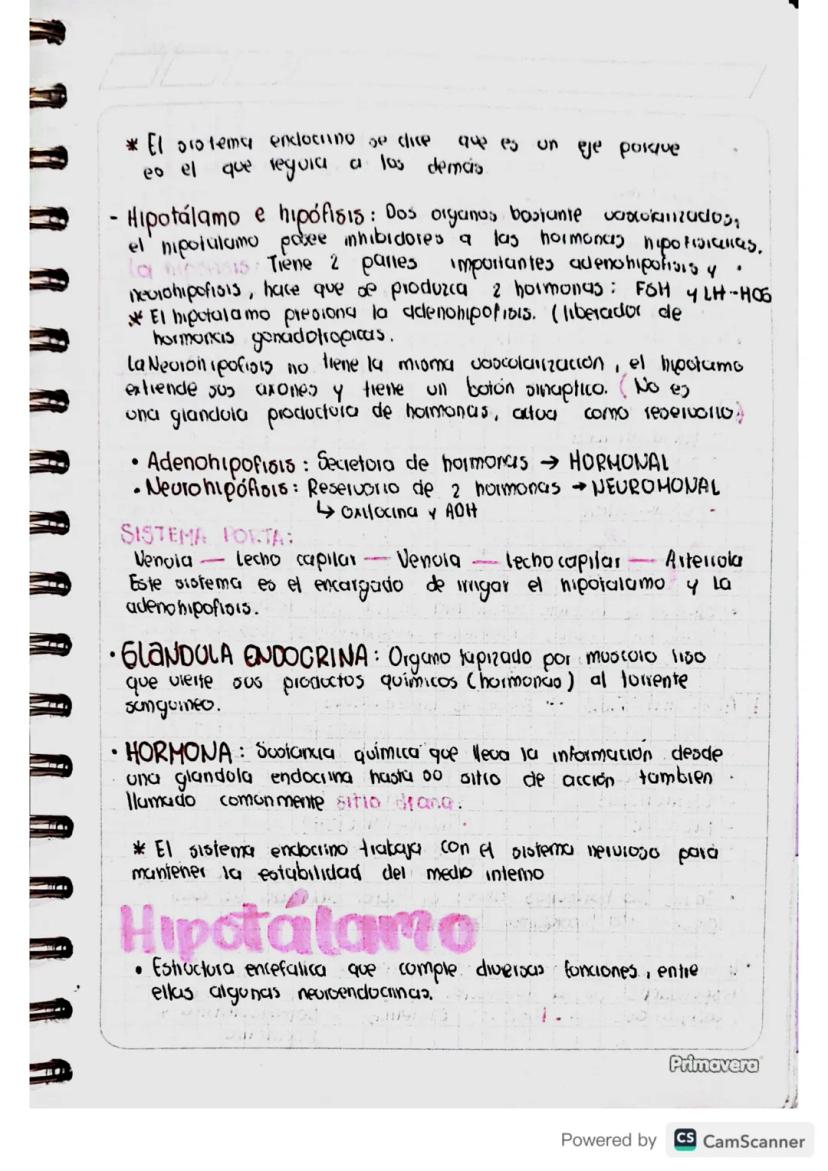 * El sistema endocrino se dice que es un eje porque
es el que regula a los demás.
- Hipotálamo e hipófisis: Dos organos bastante vascularizados,
el hipotalamo posee inhibidores a las hormonas hipofisianas.
la hipofisis: Tiene 2 partes importantes adenohipofisis y
neurohipofisis, hace que se produzca 2 hormonas: FSH y LH-HCG
* El hipotalamo presiona la adenohipofisis. (liberador de
hormonas gonadotropicas.
La Neurohipofisis no tiene la misma vascularización, el hipotamo
extiende sus axones y tiene un botón sinaptico. (No es
una glandula productora de hormonas, actua como reservorio)
• Adenohipofisis: Secretora de hormonas → HORMONAL
• Neurohipófisis: Reservorio de 2 hormonas → NEUROMONAL
↳ Oxitocina y ADH
SISTEMA PORTA:
Venola — Lecho capilar — Venola — Lecho capilar — Arteriola
Este sistema es el encargado de irrigar el hipotalamo y la
adenohipofisis.
• GLANDULA ENDOCRINA: Organo tapizado por musculo liso
que vierte sus productos químicos (hormonas) al torrente
sanguineo.
• HORMONA: Sustancia química que lleva la información desde
una glandola endocrina hasta su sitio de acción tambien
llamado comunmente sitio diana.
* El sistema endocrino trabaja con el sistema nervioso para
mantener la estabilidad del medio interno
Hipotálamo
• Estructura encefalica que comple diversas funciones, entre
ellas algunas neuroendocrinas.
Primavera
Powered by CS CamScanner